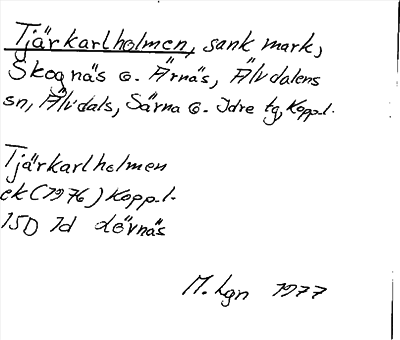 Tjärkarlholmen, sank mark,
Skognäs o. Ärnäs, Älvdalens
sn, Älvdals, Särna o. Idre tg, Kopp.l.
Tjärkarlholmen
ek (1976) Kopp.l.
15D 1d
M. Lgn 1977